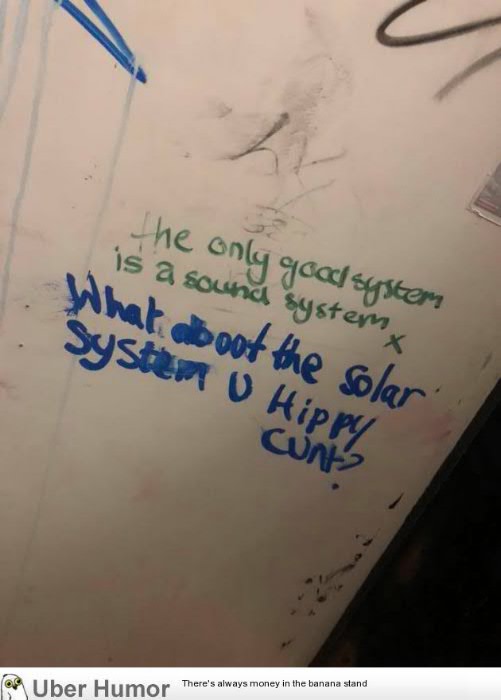 the only good system
is a sound system x
What aboot the solar
System U Hippy
CUNt?
Uber Humor
There's always money in the banana stand